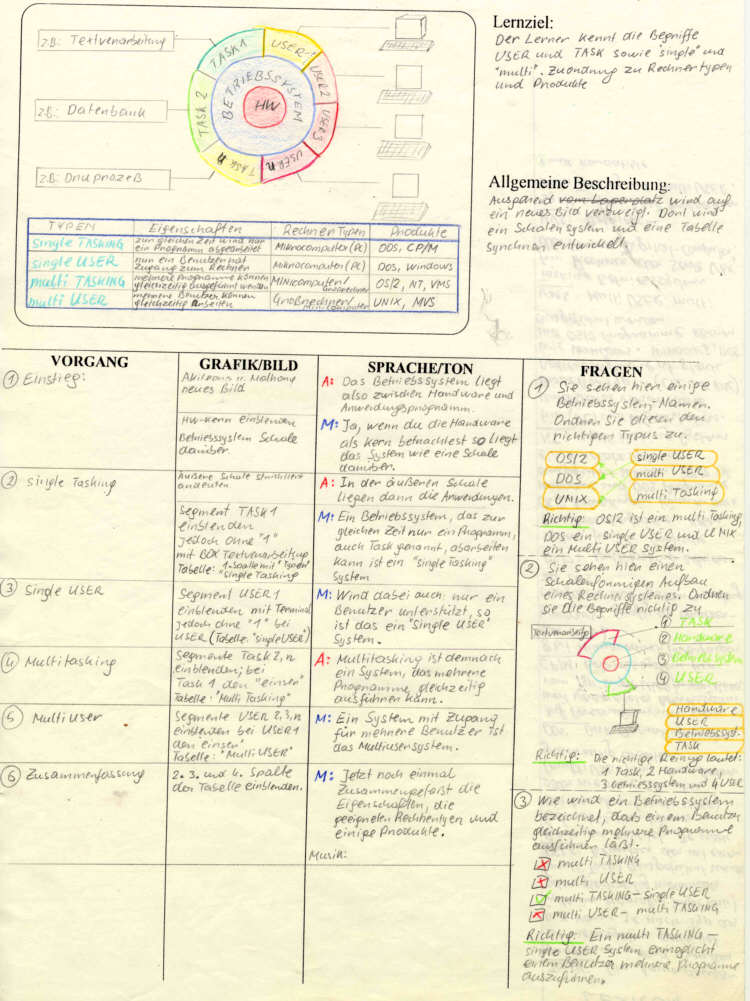 z.B.: Textverarbeitung
z.B.: Datenbank
z.B.: Druprozeß
TASK 1
USER 1
USER 2
USER 3
USER n
TASK n
TASK 2
BETRIEBSSYSTEM
HW
TYPEN Eigenschaften RechnerTypen Produkte
single TASKING zum gleichen Zeit wird nur ein Programm abgearbeitet Mikrocomputer (PC) DOS, CP/M
single USER nur ein Benutzer hat Zugang zum Rechner Mikrocomputer (PC) DOS, Windows
multi TASKING mehrere Programme können gleichzeitig ausgeführt werden Minicomputer/ Großrechner OS/2, NT, VMS
multi USER mehrere Benutzer können gleichzeitig arbeiten Großrechner/ Minicomputer UNIX, MVS
Lernziel:
Der Lerner kennt die Begriffe
USER und TASK sowie "single" und
"multi". Zuordnung zu Rechnertypen
und Produkte
Allgemeine Beschreibung:
Ausgehend vom Lagerplatz wird auf
ein neues Bild verzweigt. Dort wird
ein Schalensystem und eine Tabelle
synchron entwickelt.
VORGANG
① Einstieg:
② Single Tasking
③ Single USER
④ Multitasking
⑤ Multi User
⑥ Zusammenfassung
GRAFIK/BILD
neues Bild
HW-Kern einblenden
Betriebssystem Schale
darüber.
Äußere Schale strichliert
andeuten
Segment TASK 1
einblenden
jedoch ohne "1"
mit BOX Textverarbeitung
Tabelle: "1. Spalte mit "Typen"
single Tasking
Segment USER 1
einblenden mit Terminal
jedoch ohne "1" bei
USER (Tabelle: "single USER")
Segmente Task 2, n
einblenden; bei
Task 1 den "einser"
Tabelle: "Multi Tasking"
Segmente USER 2, 3, n
einblenden bei USER 1
den einser.
Tabelle: "Multi USER"
2. 3. und 4. Spalte
der Tabelle einblenden.
SPRACHE/TON
A: Das Betriebssystem liegt
also zwischen Hardware und
Anwendungsprogramm.
M: Ja, wenn du die Hardware
als Kern betrachtest so liegt
das System wie eine Schale
darüber.
A: In der äußeren Schale
liegen dann die Anwendungen.
M: Ein Betriebssystem, das zur
gleichen Zeit nur ein Programm,
auch Task genannt, abarbeiten
kann ist ein "single Tasking"
System
M: Wird dabei auch nur ein
Benutzer unterstützt, so
ist das ein "single USER"
System.
A: Multitasking ist demnach
ein System, das mehrere
Programme gleichzeitig
ausführen kann.
M: Ein System mit Zugang
für mehrere Benutzer ist
das Multiusersystem.
M: Jetzt noch einmal
Zusammengefaßt die
Eigenschaften, die
geeigneten Rechnertypen und
einige Produkte.
Musik:
FRAGEN
① Sie sehen hier einige
Betriebssystem-Namen.
Ordnen Sie diesen den
richtigen Typus zu.
OS/2 single USER
DOS multi USER
UNIX multi Tasking
Richtig: OS/2 ist ein multi Tasking,
DOS ein single USER und UNIX
ein Multi USER System.
② Sie sehen hier einen
Schalenförmigen Aufbau
eines Rechnersystemes. Ordnen
sie die Begriffe richtig zu
Textverarbeitg
① TASK
② Hardware
③ Betriebssystem
④ USER
Hardware
USER
Betriebssyst.
TASK
Richtig: Die richtige Reihung lautet:
1 Task, 2 Hardware,
3 Betriebssystem und 4 USER
③ Wie wird ein Betriebssystem
bezeichnet, das einem Benutzer
gleichzeitig mehrere Programme
ausführen läßt.
multi TASKING
multi USER
multi TASKING – single USER
multi USER – multi TASKING
Richtig: Ein multi TASKING –
single USER System ermöglicht
einem Benutzer mehrere Programme
auszuführen.